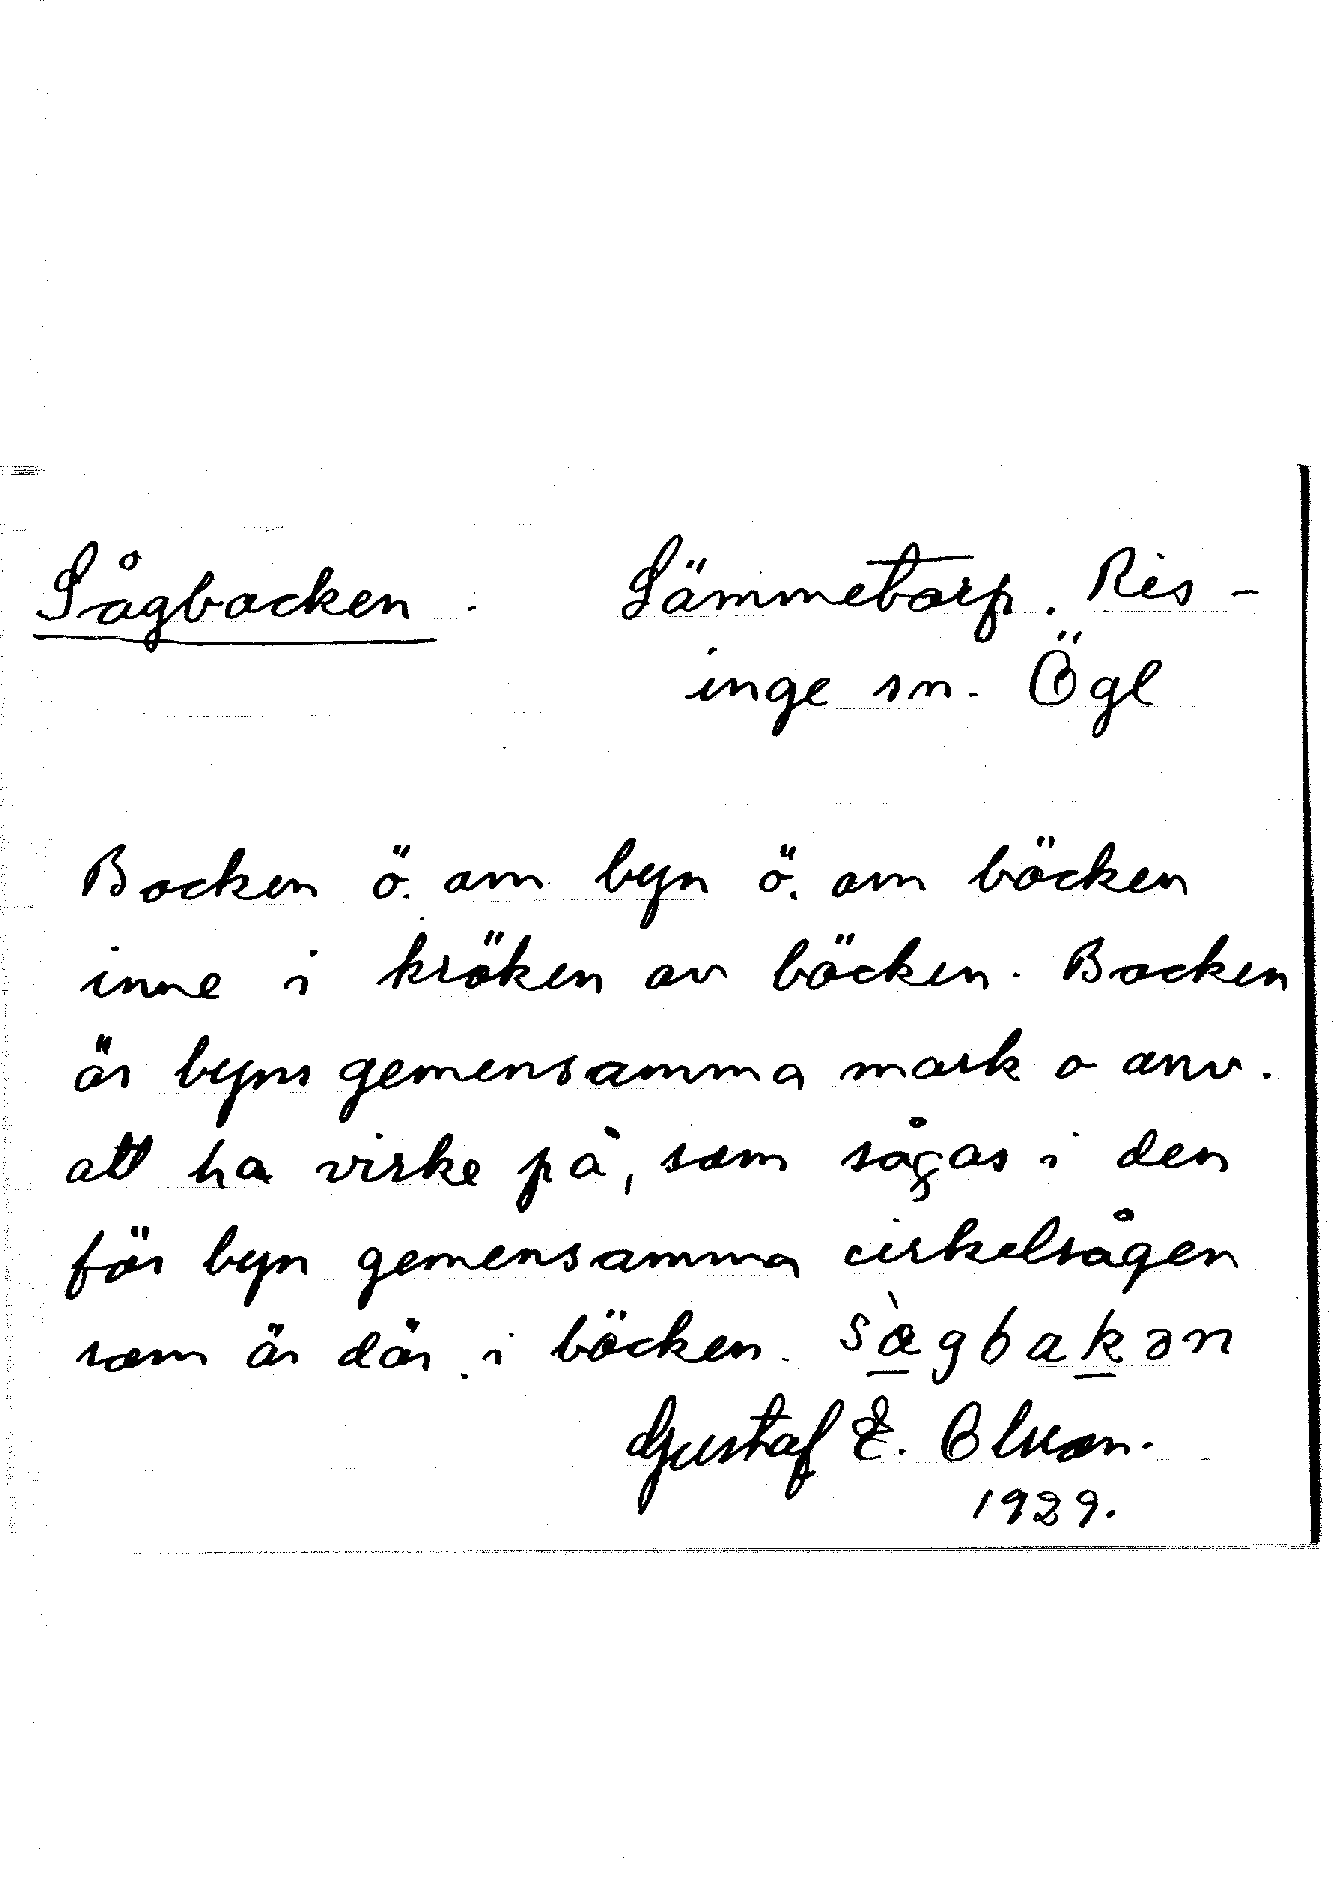 Sågbacken. Sämmetorp. Ris-
inge sn. Ögl
Backen ö. om byn ö. om bäcken
inne i kröken av bäcken. Backen
är byns gemensamma mark o anv.
att ha virke på, som sågas i den
för byn gemensamma cirkelsågen
som är där i bäcken. sàgbakən
Gustaf E. Olsson.
1929.